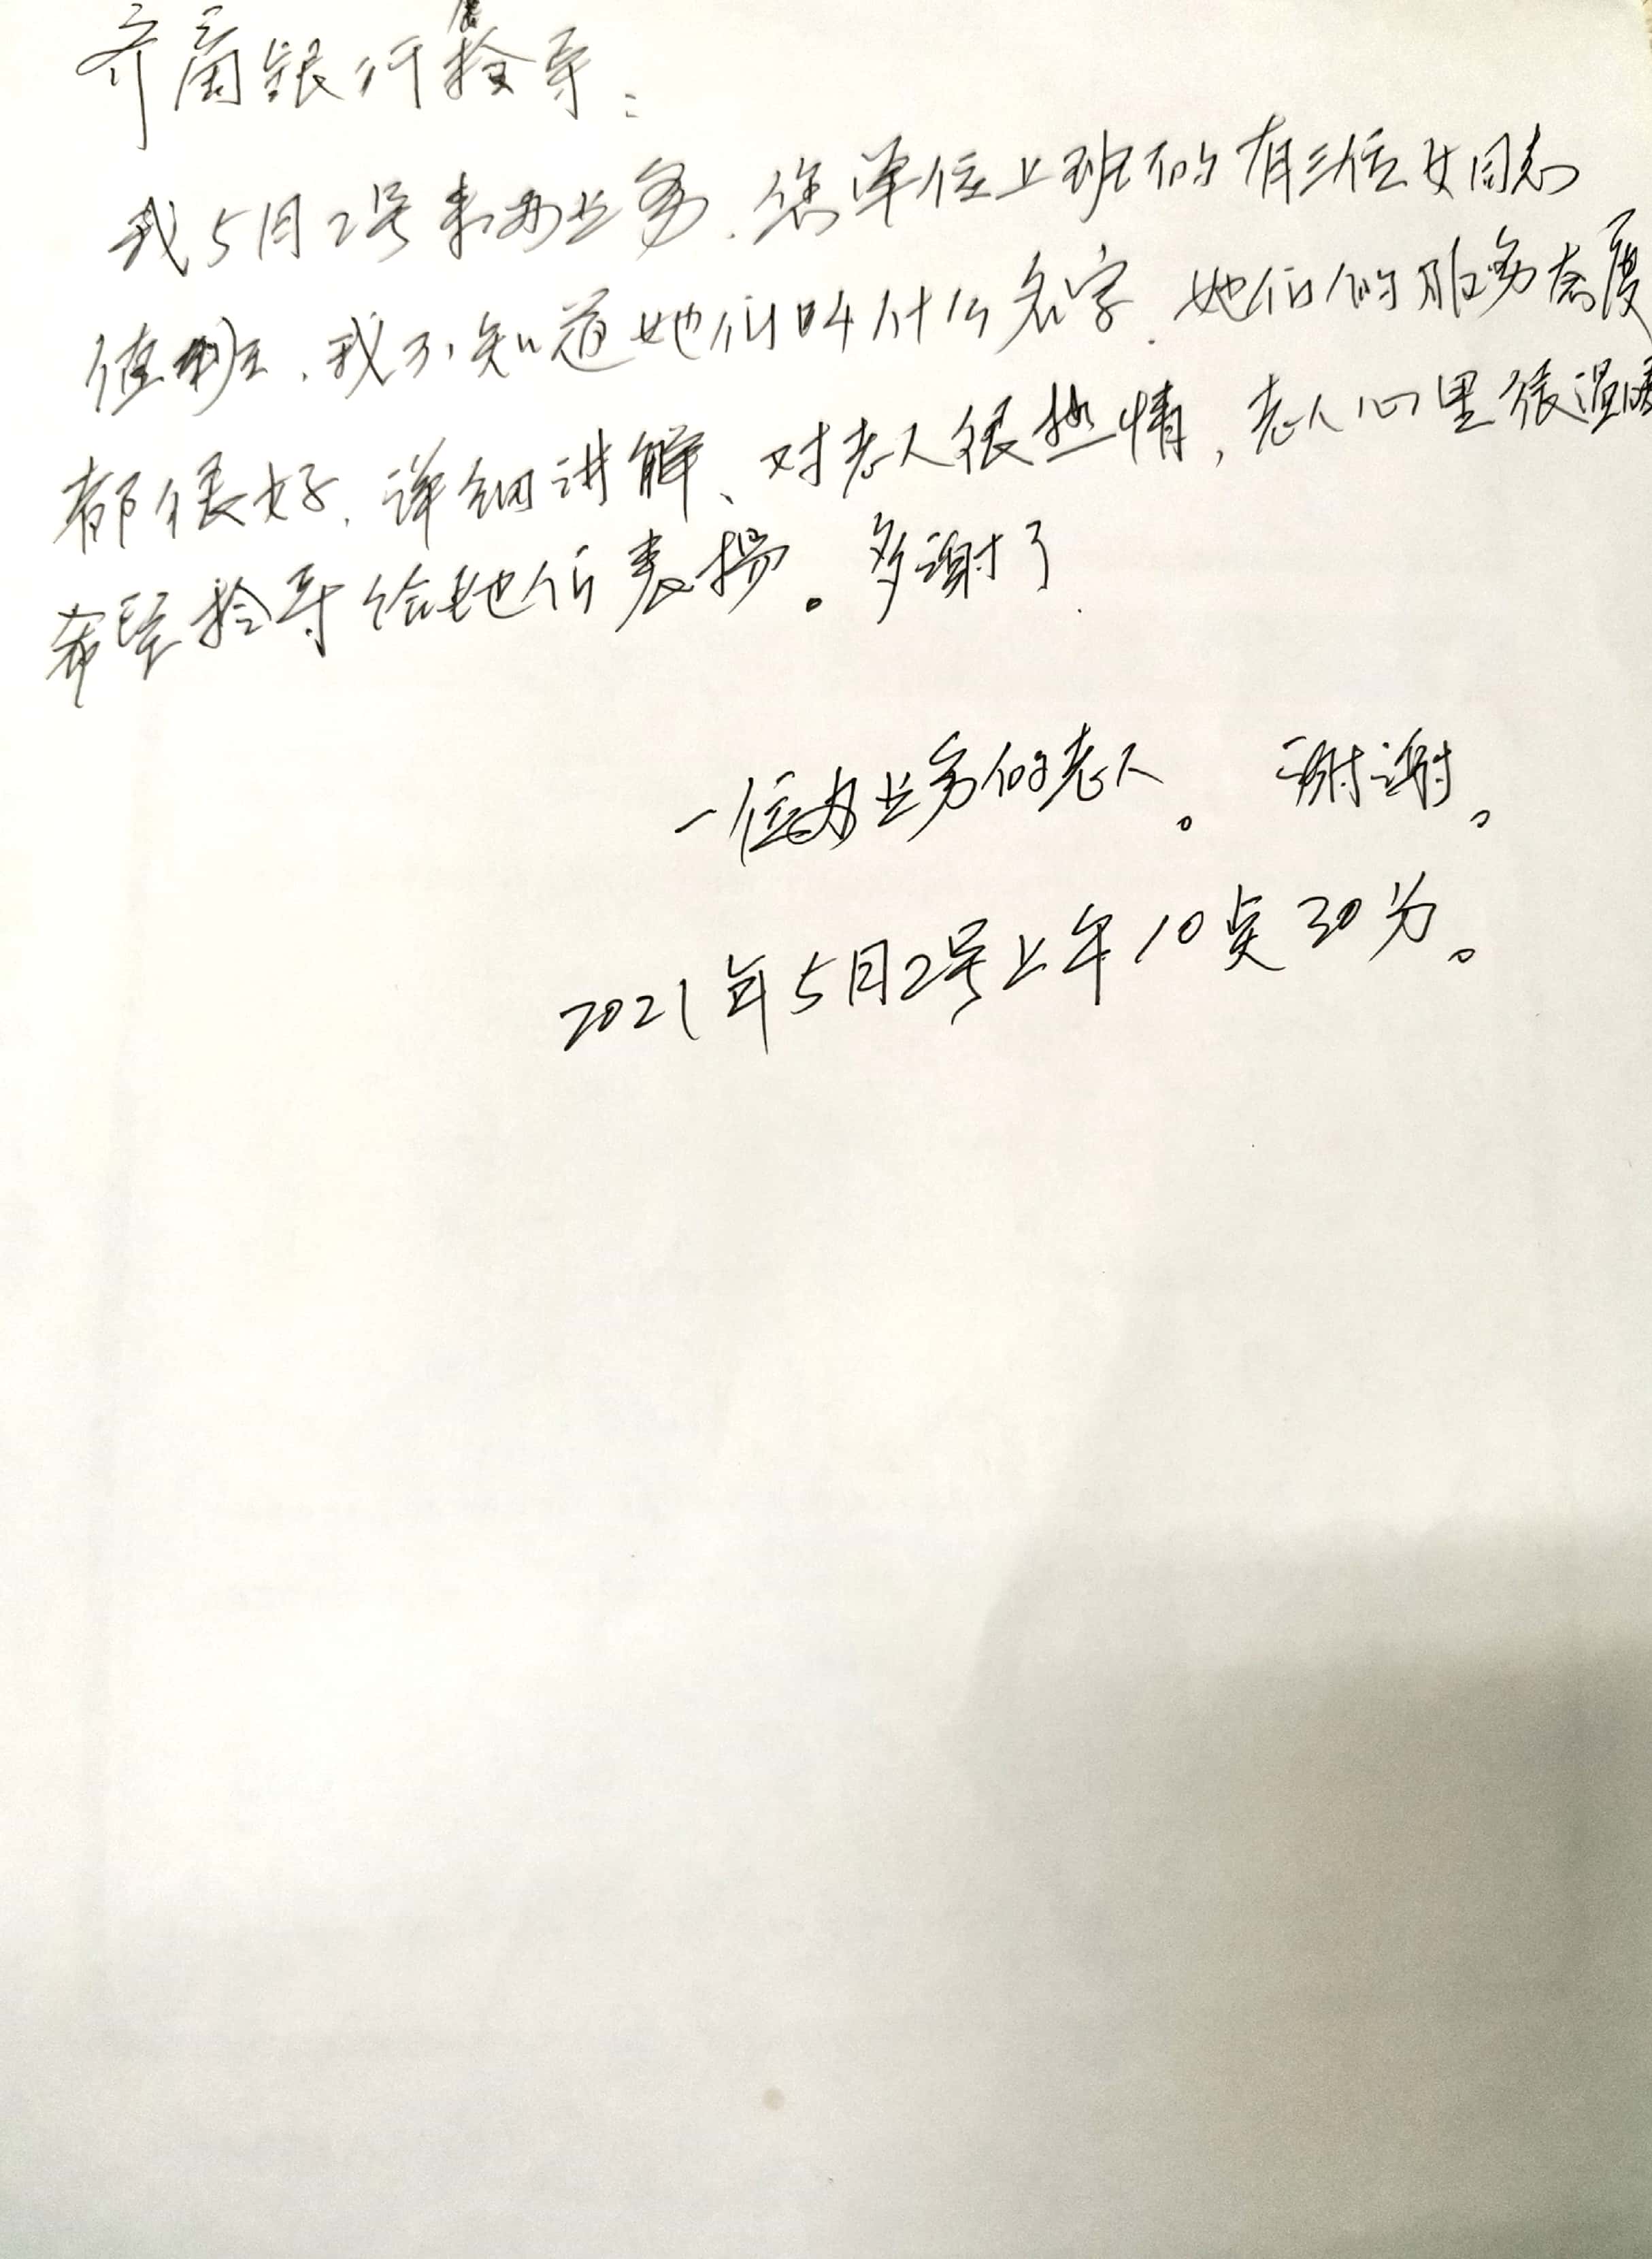 齐商银行领导：
我5月2号来办业务.您单位上班的有三位女同志
值班.我不知道她们叫什么名字.她们的服务态度
都很好.详细讲解、对老人很热情，老人心里很温暖
希望领导给她们表扬。多谢了.
一位办业务的老人。 谢谢。
2021年5月2号上午10点30分。